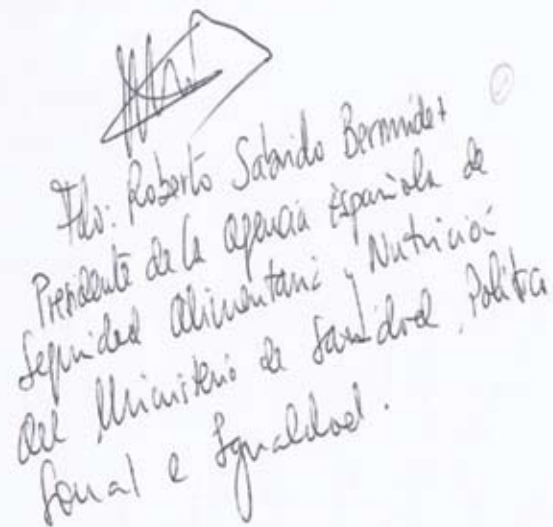 Fdo: Roberto Sabrido Bermúdez
Presidente de la agencia Española de
Seguridad alimentaria y Nutrición
del Ministerio de Sanidad, Política
Social e Igualdad.